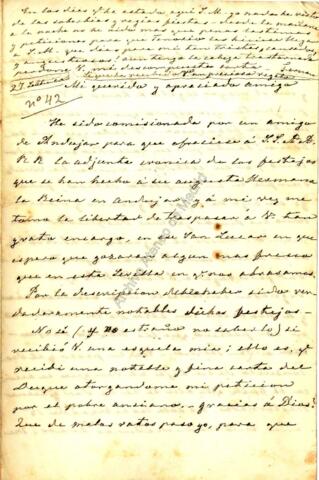 En los dias q.e ha estado aqui S.M. yo nada he visto
de las soberbias y regias fiestas - desde la mañana
a la noche no he oido mas que penas lastimas
y peticiones para que
S.M. que dias para mi tan tristes, cansados
y angustiosos! aun tengo la cabeza trastornada
perdone V. mis
27 Setiembre
nº 42
Mi querido y apreciado amigo
He sido comisionada por un amigo
de Andujar para que ofreciese á S.S. A.A.
R.R. la adjunta cronica de los festejos
que se han hecho á su augusta Hermana
la Reina en Andujar y á mi vez me
tomo la libertad de traspasar á V. tan
grato encargo, en su San Lucar en que
espero que gozará algun mas fresco
que en esta Sevilla en q.e nos abrasamos.
Por la descripcion deben haber sido ver-
daderamente notables dichos festejos -
No sé (y no estraño no saberlo) si
recibió V. una esquela mia; ello es, q.e
recibi una notable y fina carta del
Duque otorgandome mi peticion
por el pobre anciano. - gracias á Dios!
Que de malos ratos paso yo, para que
Archivo Ateneo de Madrid